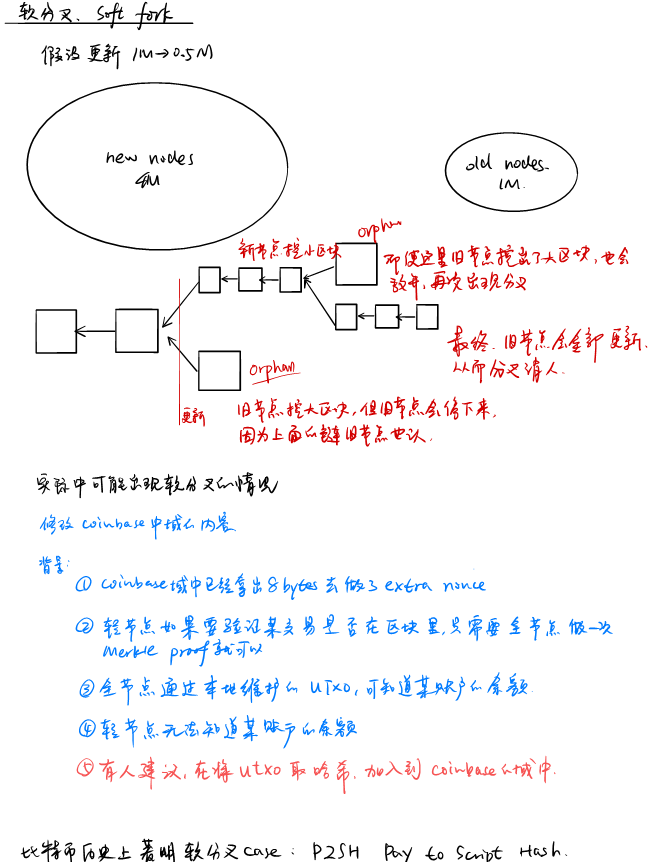 软分叉. Soft fork
假设更新 1M→0.5M
new nodes
old nodes.
1M.
orphan
新节点挖小区块
即使这里旧节点挖出了大区块,也会
放弃,再次出现分叉
最终,旧节点会全部更新,
从而分叉消人.
orphan
更新
旧节点挖大区块,但旧节点会停下来,
因为上面的链旧节点也认.
实际中可能出现软分叉的情况
修改 coinbase中域的内容
背景:
① coinbase域中已经拿出8bytes去做了extra nonce
② 轻节点如果要验证某交易是否在区块里,只需要全节点做一次
Merkle proof就可以
③ 全节点通过本地维护的UTXO,可知道某账户的余额.
④ 轻节点无法知道某账户的余额
⑤ 有人建议,在将UTXO取哈希,加入到coinbase的域中.
比特币历史上著明软分叉case: P2SH Pay to Script Hash.